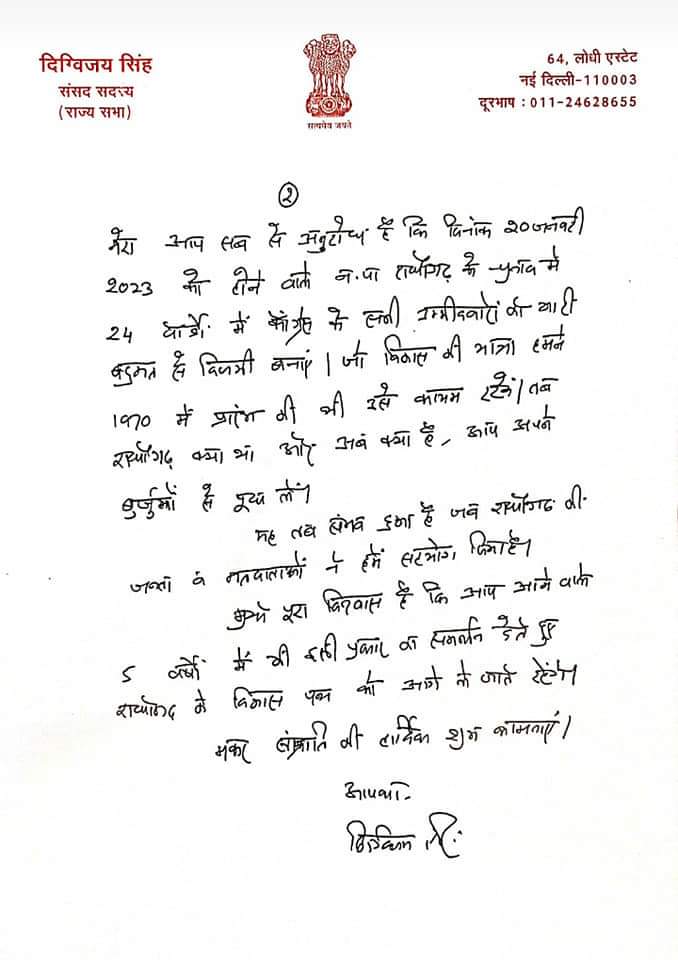 दिग्विजय सिंह
संसद सदस्य
(राज्य सभा)
सत्यमेव जयते
64, लोधी एस्टेट
नई दिल्ली-110003
दूरभाष : 011-24628655
२
मेरा आप सब से अनुरोध है कि दिनांक 20 जनवरी
2023 को होने वाले न.पा राघोगढ़ के चुनाव में
24 वार्डों में कांग्रेस के सभी उम्मीदवारों को भारी
बहुमत से विजयी बनाएं। जो विकास की यात्रा हमने
1970 में प्रारंभ की थी उसे कायम रखें। तब
राघोगढ़ क्या था और अब क्या है, आप अपने
बुर्जुगों से पूछ लें।
यह तब संभव हुआ है जब राघोगढ़ की
जनता व मतदाताओं ने हमें सहयोग दिया है।
मुझे पूरा विश्वास है कि आप आने वाले
5 वर्षों में भी इसी प्रकार का समर्थन देते हुए
राघोगढ़ के विकास पथ को आगे ले जाते रहेंगे।
मकर संक्राति की हार्दिक शुभ कामनाएं।
आपका-